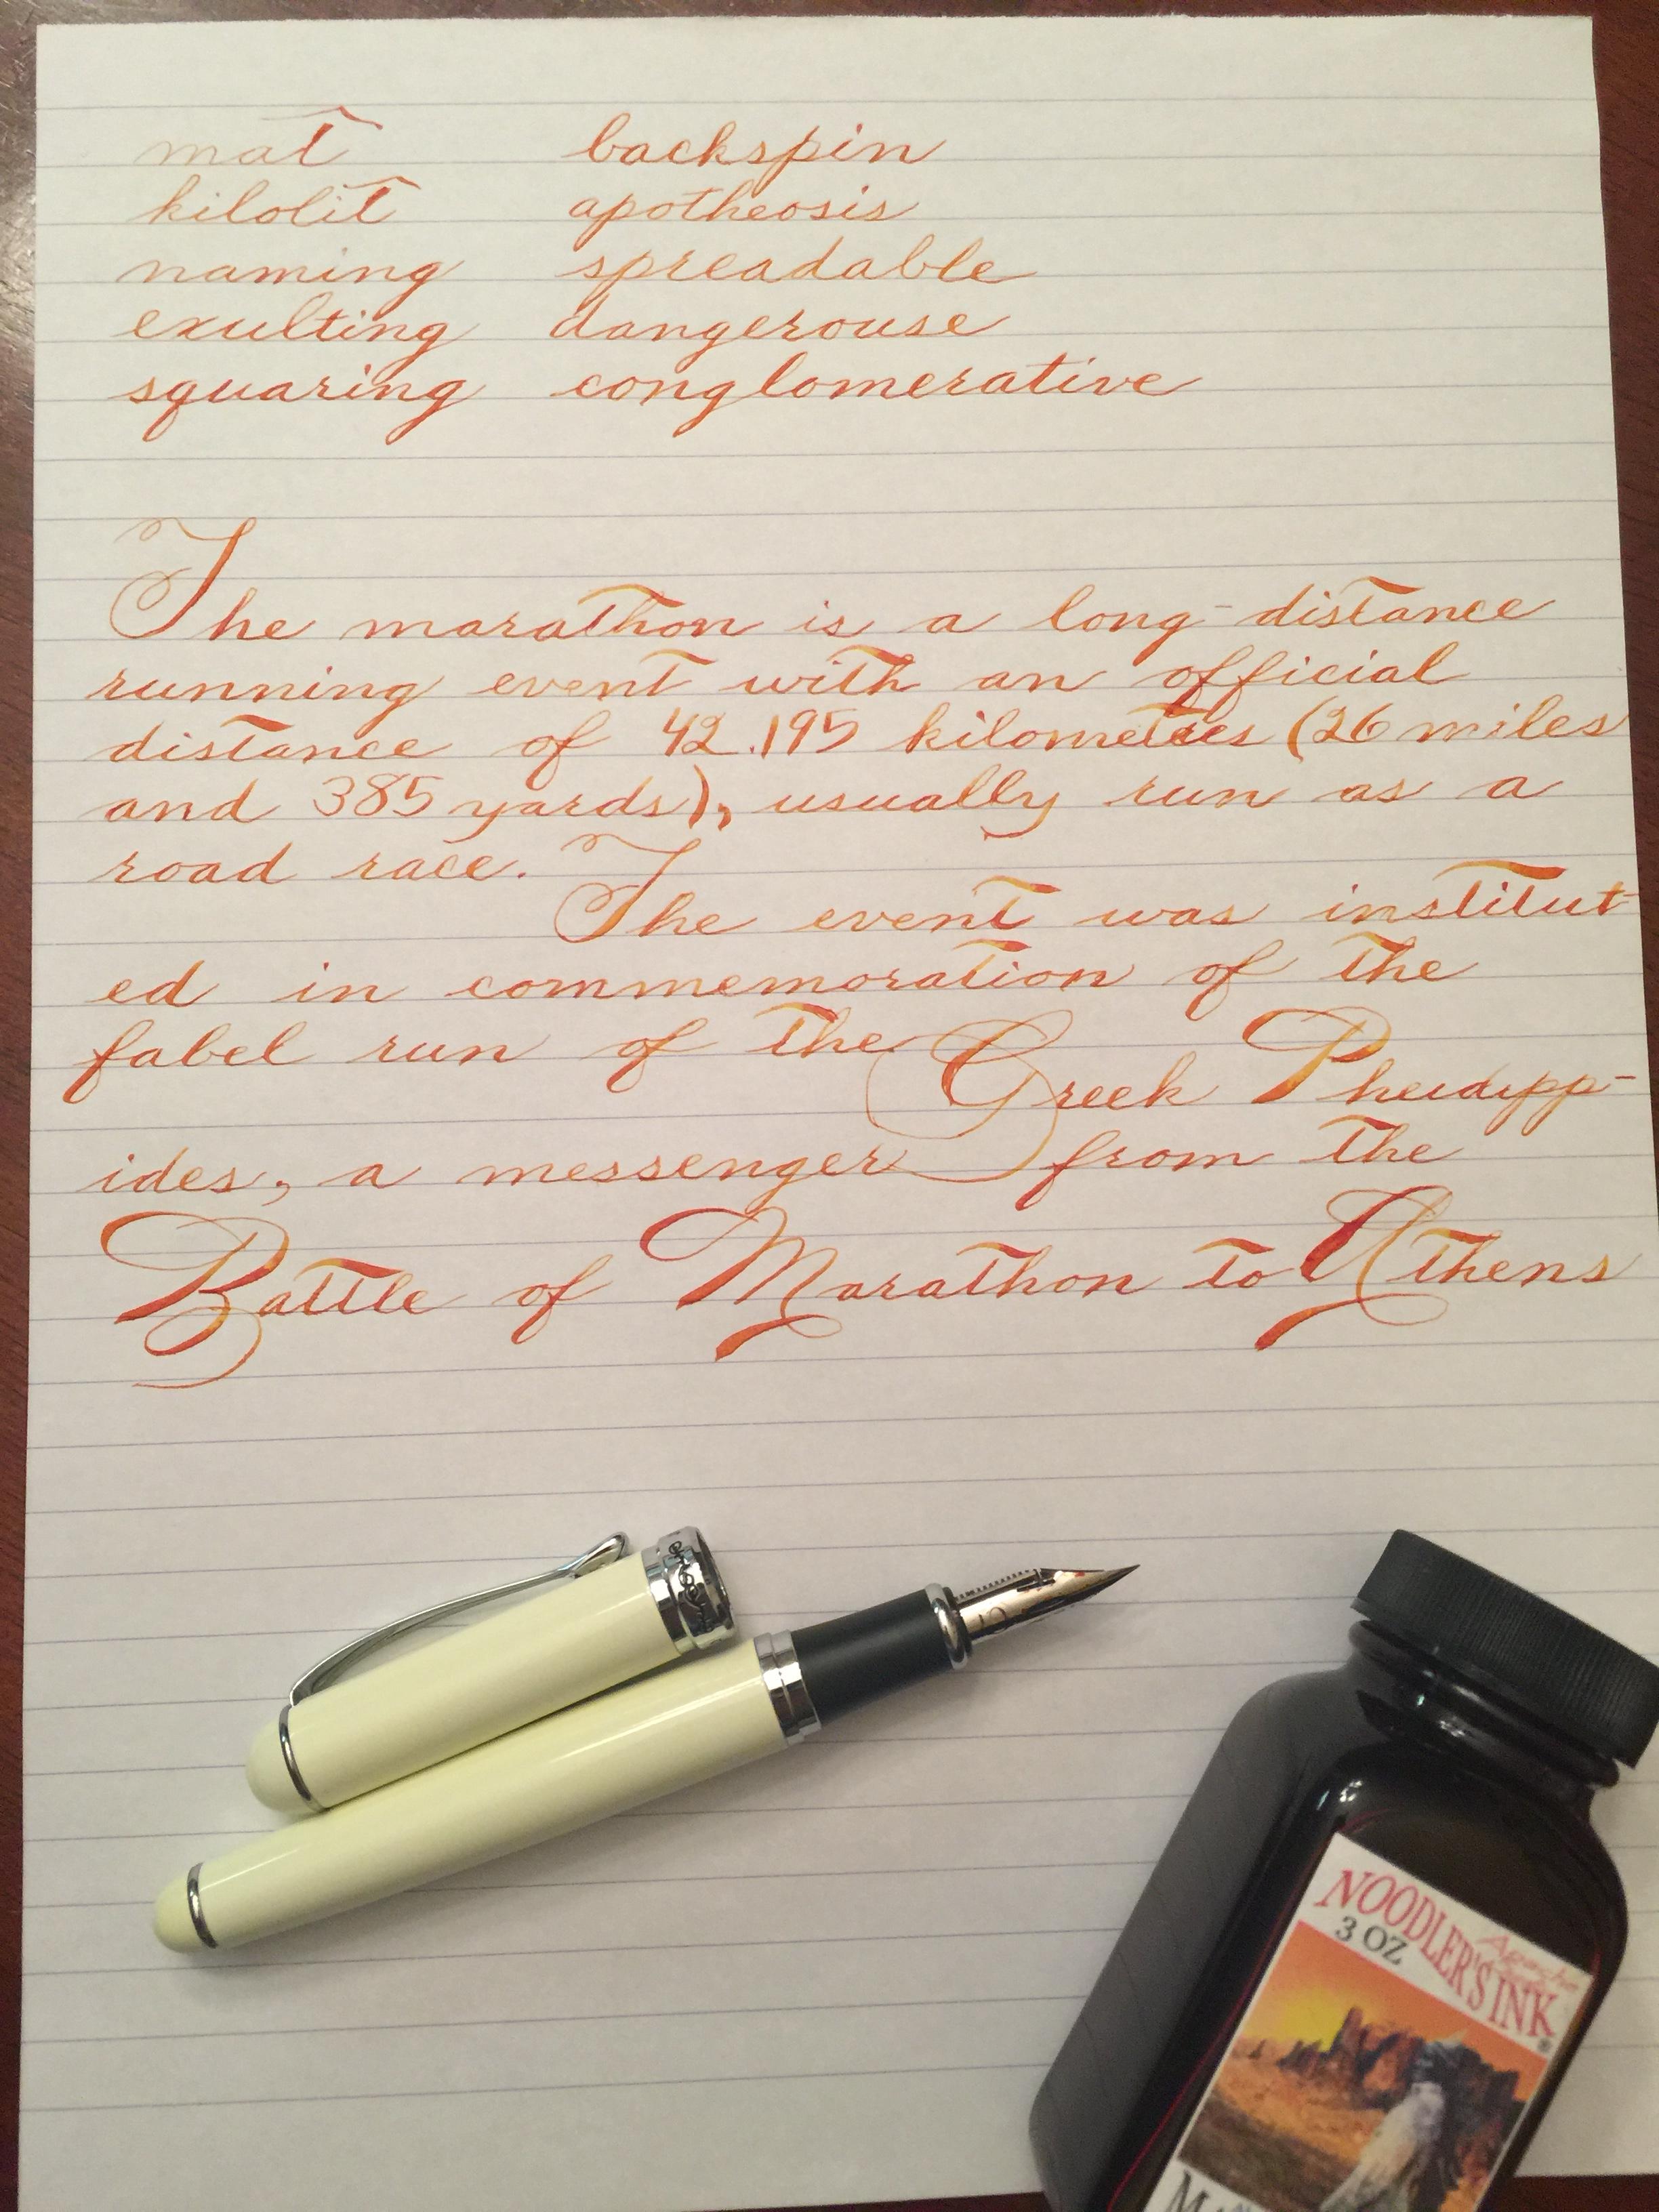 mat backspin
kilolit apotheosis
naming spreadable
exulting dangerouse
squaring conglomerative
The marathon is a long-distance
running event with an official
distance of 42.195 kilometres (26 miles
and 385 yards), usually run as a
road race.
The event was institut-
ed in commemoration of the
fabel run of the Greek Pheidipp-
ides, a messenger from the
Battle of Marathon to Athens
NOODLER'S INK®
Apache
3 OZ